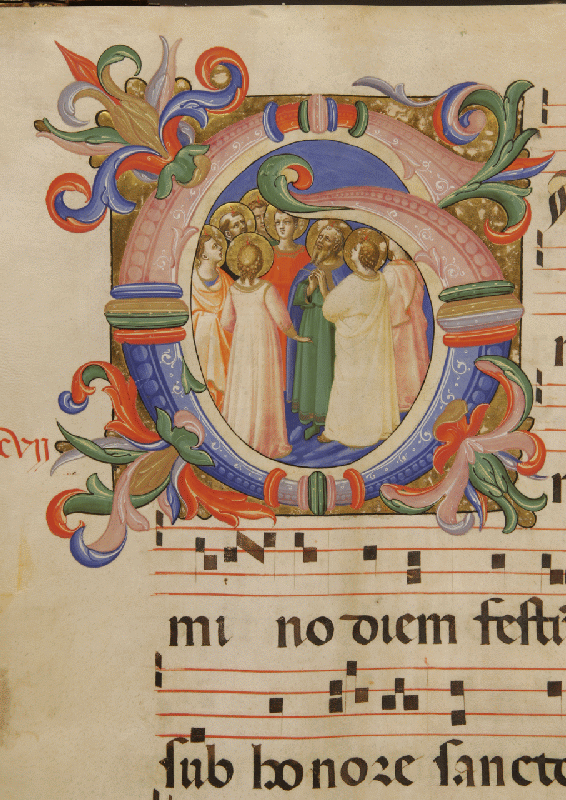 cvii
mi no diem festū
sub honore sancto